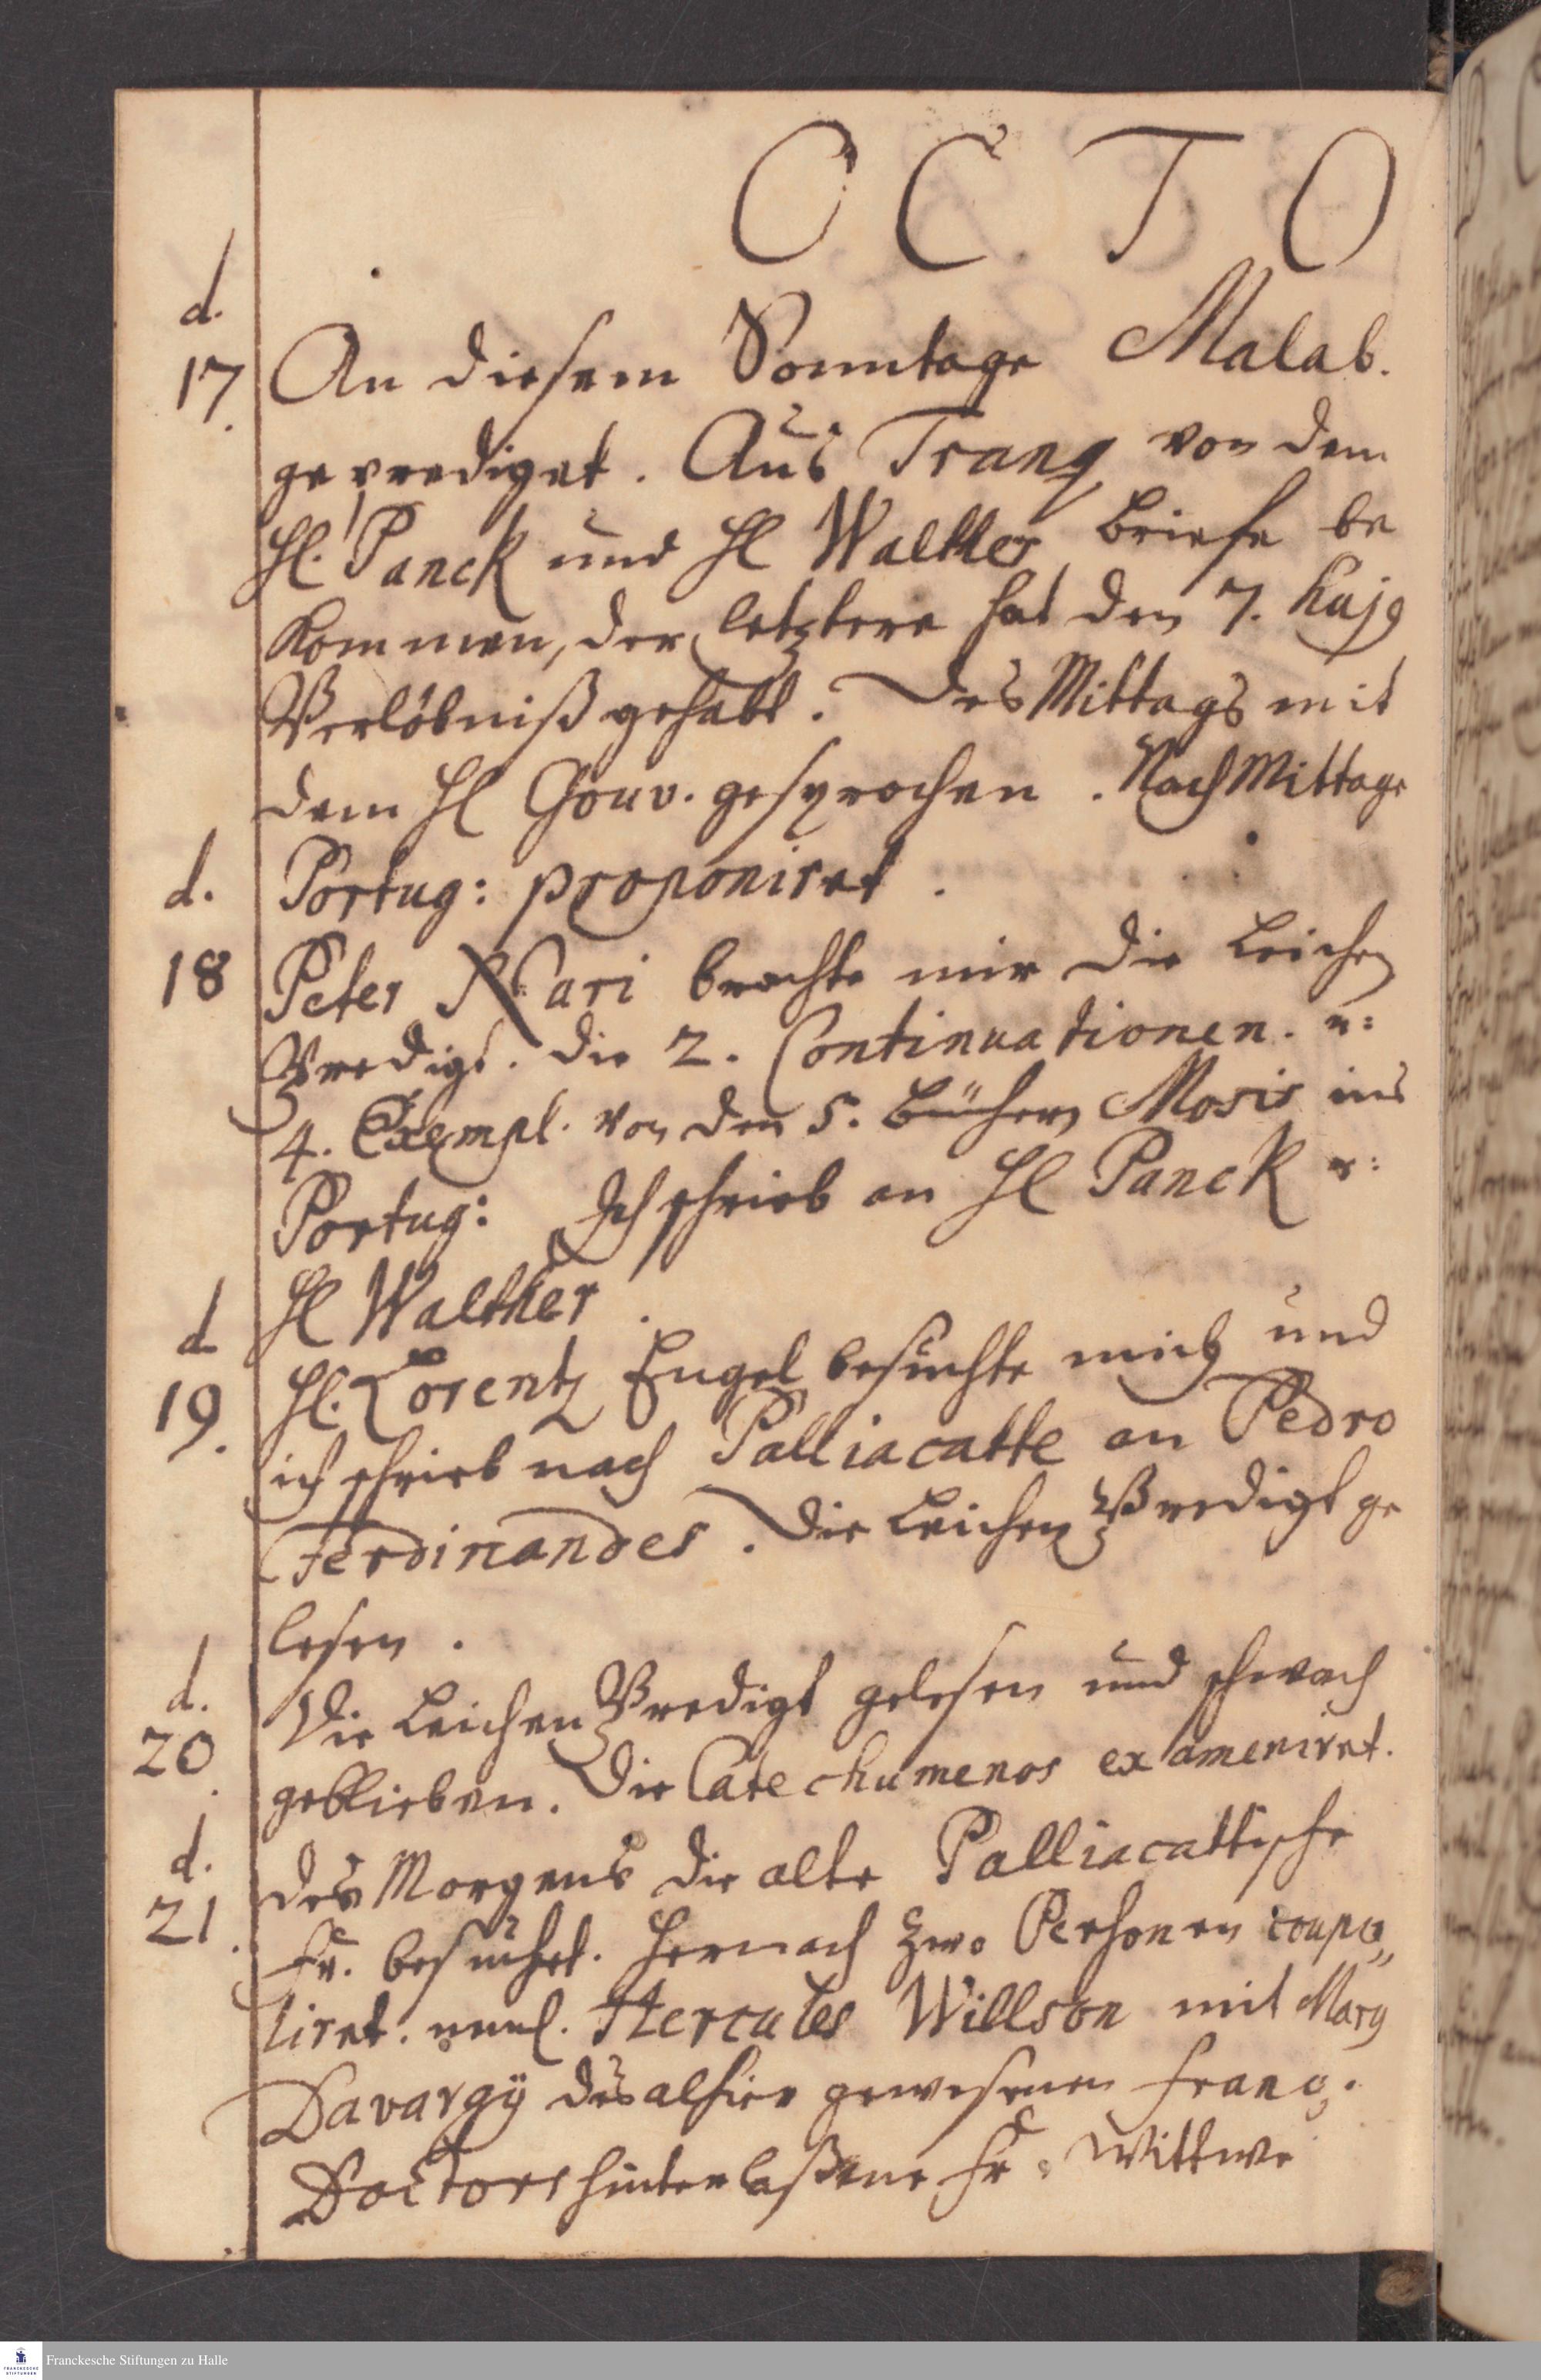 O C T O
d.
17. An diesem Sonntage Malab.
geprediget. Aus Tranq von dem
Hl. Panck und Hl Walther Briefe be
kommen, der letztere hat den 7. huj9
Verlöbniß gehabt. Des Mittags mit
dem Hl Gouv. gesprochen. NachMittage
d. Portug: proponiret.
18 Peter Nari brachte mir die Leichen
Predigt. die 2. Continuationen. u:
4. Exempl. von den 5. Büchern Mosis ins
Portug: Ich schrieb an Hl Panck u:
Hl Walther.
d
19. Hl. Lorentz Engel besuchte mich und
ich schrieb nach Palliacatte an Pedro
Ferdinandes. Die Leichen Predigt ge
lesen.
d.
20. Die Leichen Predigt gelesen und schwach
geblieben. Die Catechumenos exameniret.
d.
21. des Morgens die alte Palliacattische
Fr. besuchet. Hernach zwo Personen coupu„
liret. neml. Hercules Willson mit Mary
Davargÿ des alhier gewesenen Franç.
Doctors hinterlaßene Fr. Wittwe
Franckesche Stiftungen zu Halle
FRANCKESCHE
STIFTUNGEN